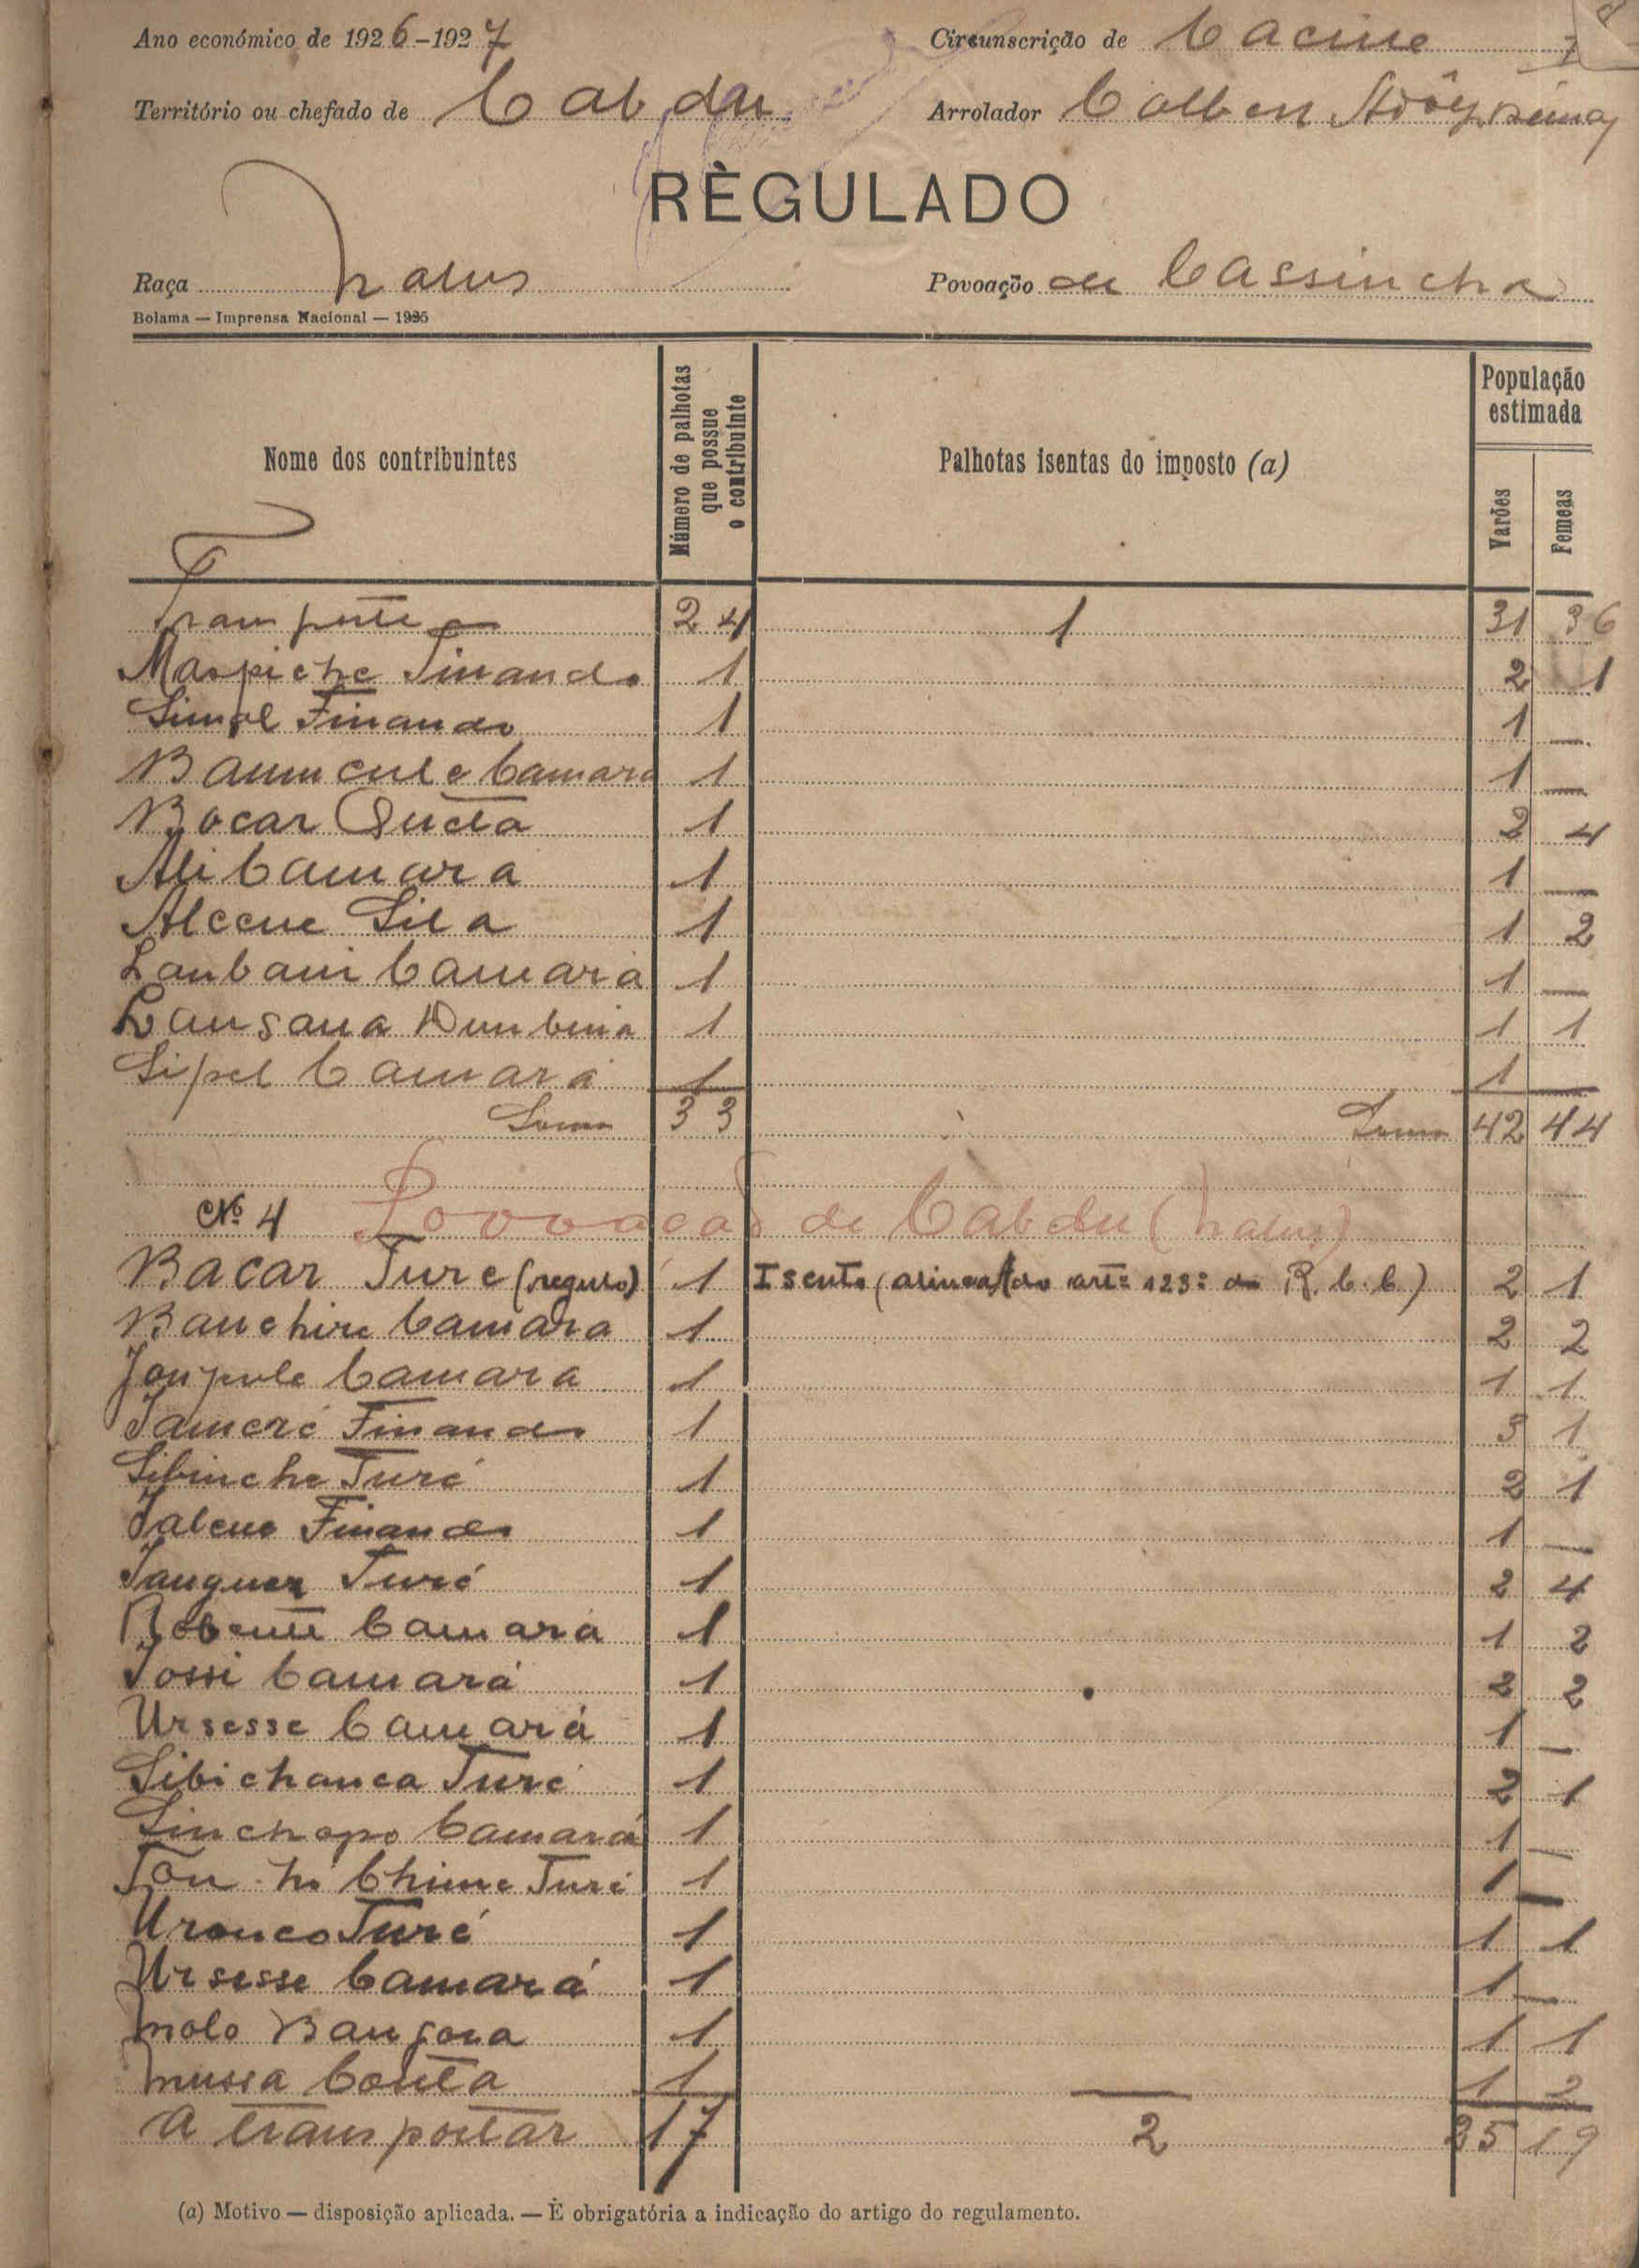 Ano económico de 1926-1927 Circunscrição de Cacine 7
Território ou chefado de Cabdu Arrolador
RÈGULADO
Raça Nalus Povoação de Cassincha
Bolama — Imprensa Nacional — 1925
Nome dos contribuintes Número de palhotas que possue o contribuinte Palhotas isentas do imposto (a) População estimada Varões Femeas
Transporte 24 1 31 36
Maspiche Finando 1 2 1
Simol Finando 1 1 —
Camara 1 1 —
Bocar Queta 1 2 4
Ali Camara 1 1 —
Alcene Sila 1 1 2
Lanbani Camara 1 1 —
Lansana Dunbuia 1 1 1
Sipel Camara 1 1 —
Soma 33 Soma 42 44
Nº 4 Povoação de Cabdu (Nalus)
Bacar Ture (regulo) 1 Isento (alinea do artº 123º do R. C. C.) 2 1
Banchire Camara 1 2 2
Jonpule Camara 1 1 1
Tameré Finando 1 3 1
Sibinche Turé 1 2 1
Talene Finando 1 1 —
Turé 1 2 4
Camará 1 1 2
Tossi Camará 1 2 2
Ursesse Camará 1 1 —
Sibichanca Turé 1 2 1
Sinchopo Camará 1 1 —
Turé 1 1 —
Uronco Turé 1 1 1
Ursesse Camará 1 1 —
Molo Bangora 1 1 1
Mussa Conta 1 1 2
A transportar 17 2 25 19
(a) Motivo — disposição aplicada. — É obrigatória a indicação do artigo do regulamento.